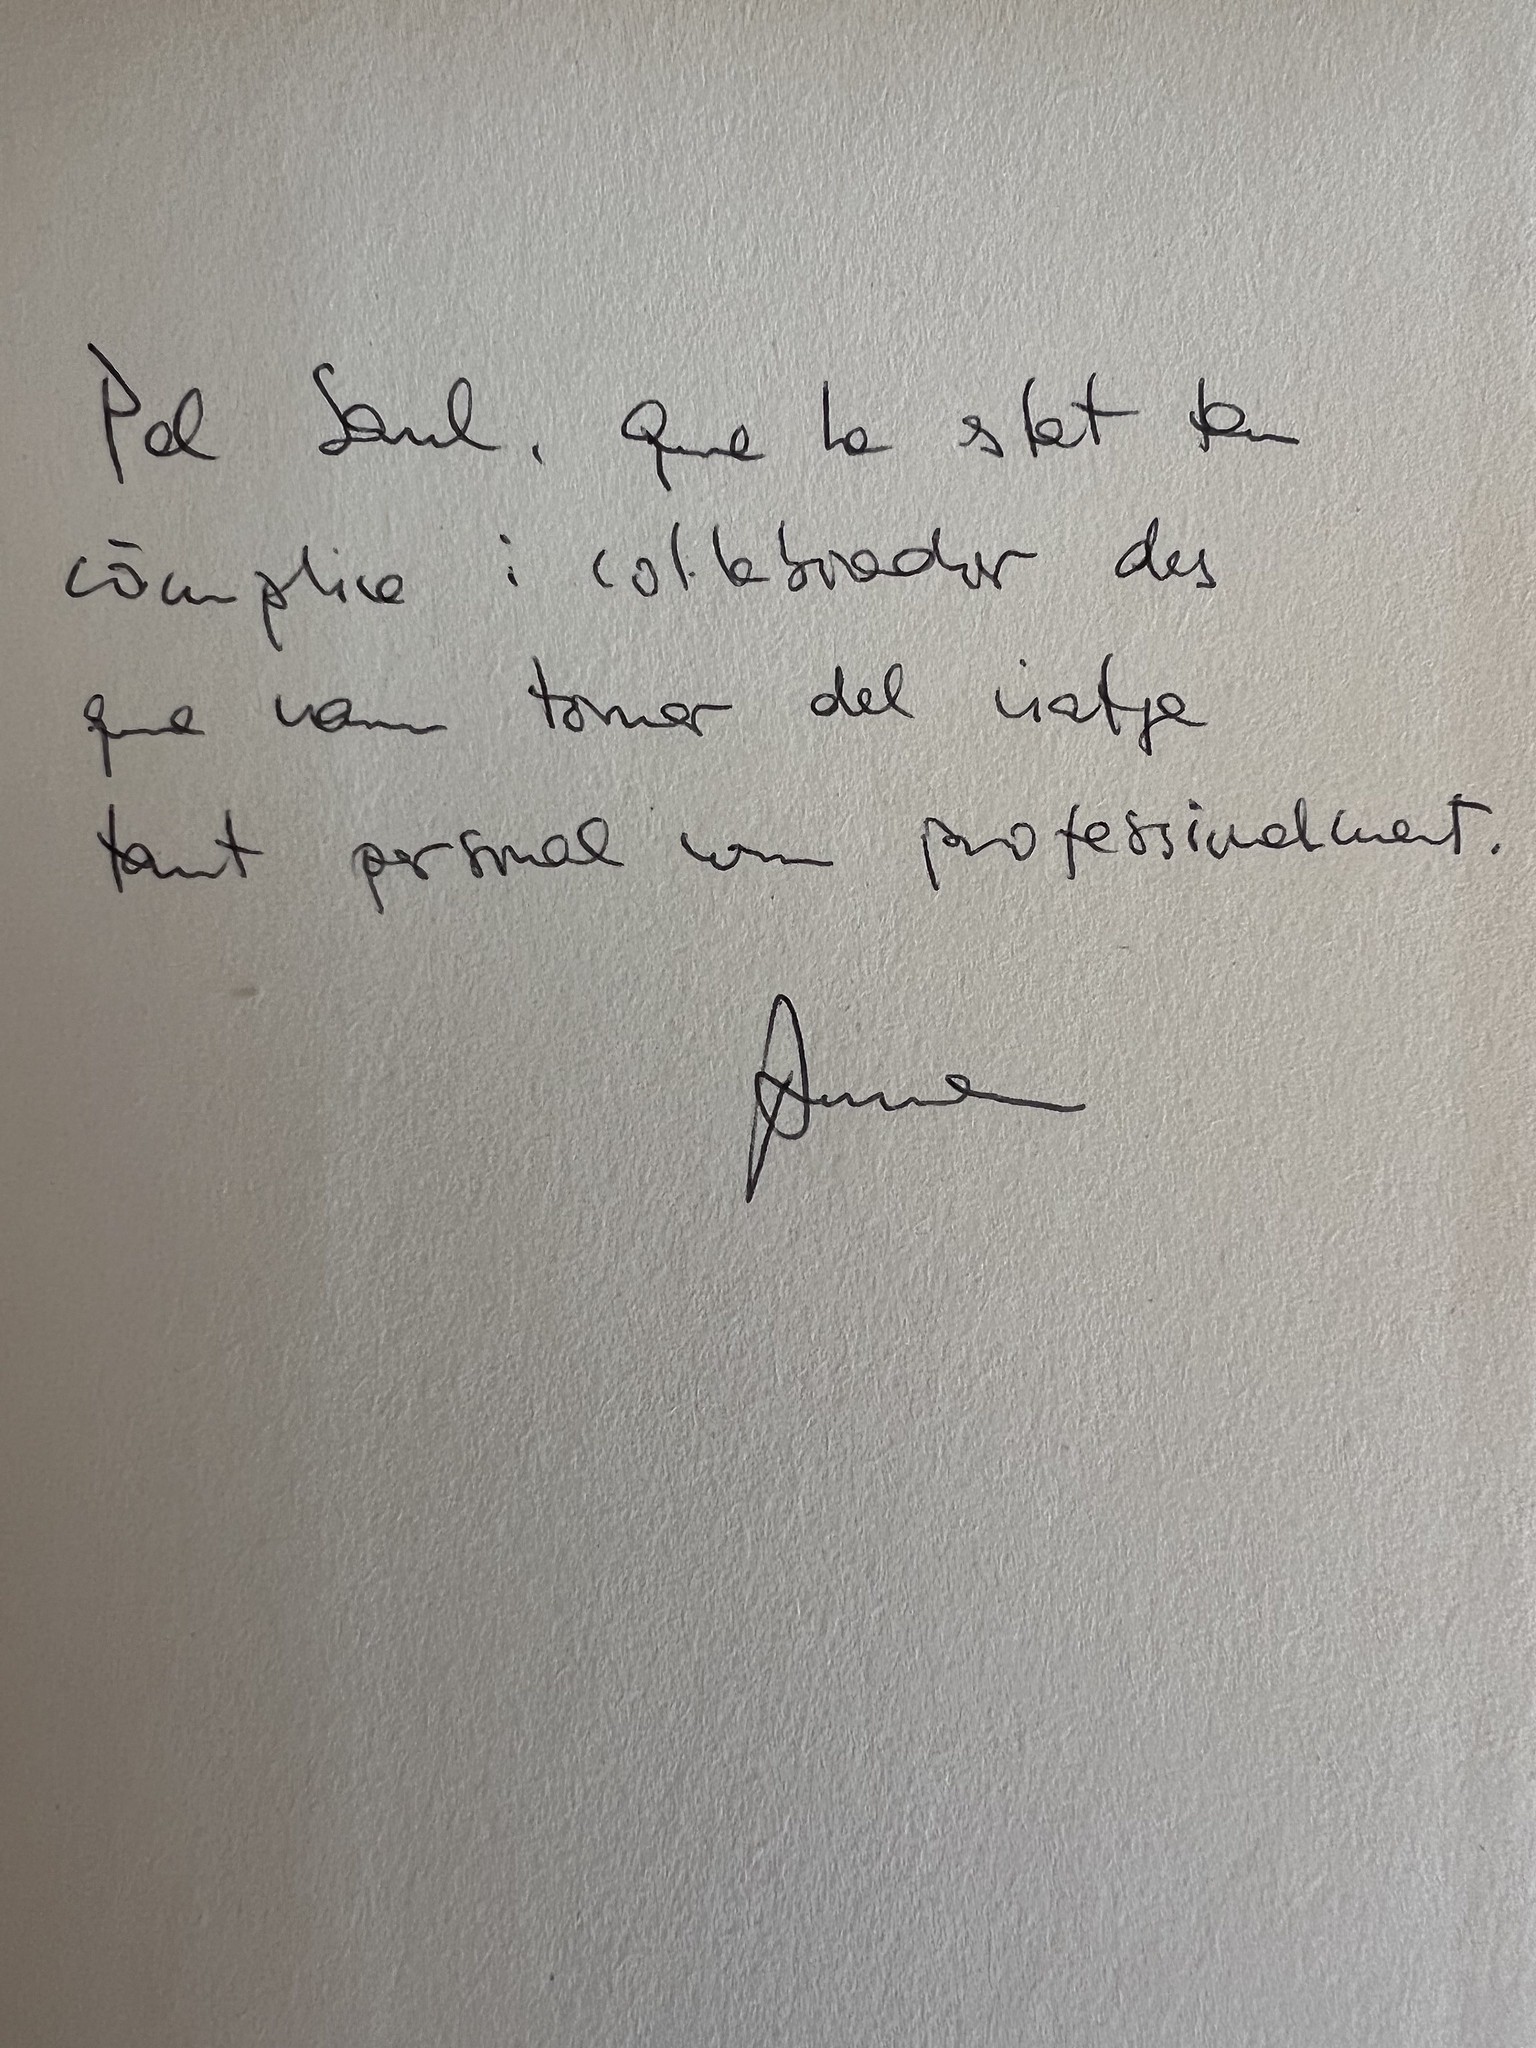 Pel Saul, que ha estat tan
còmplice i col·laborador des
que vam tornar del viatge
tant personal com professionalment.
Anna